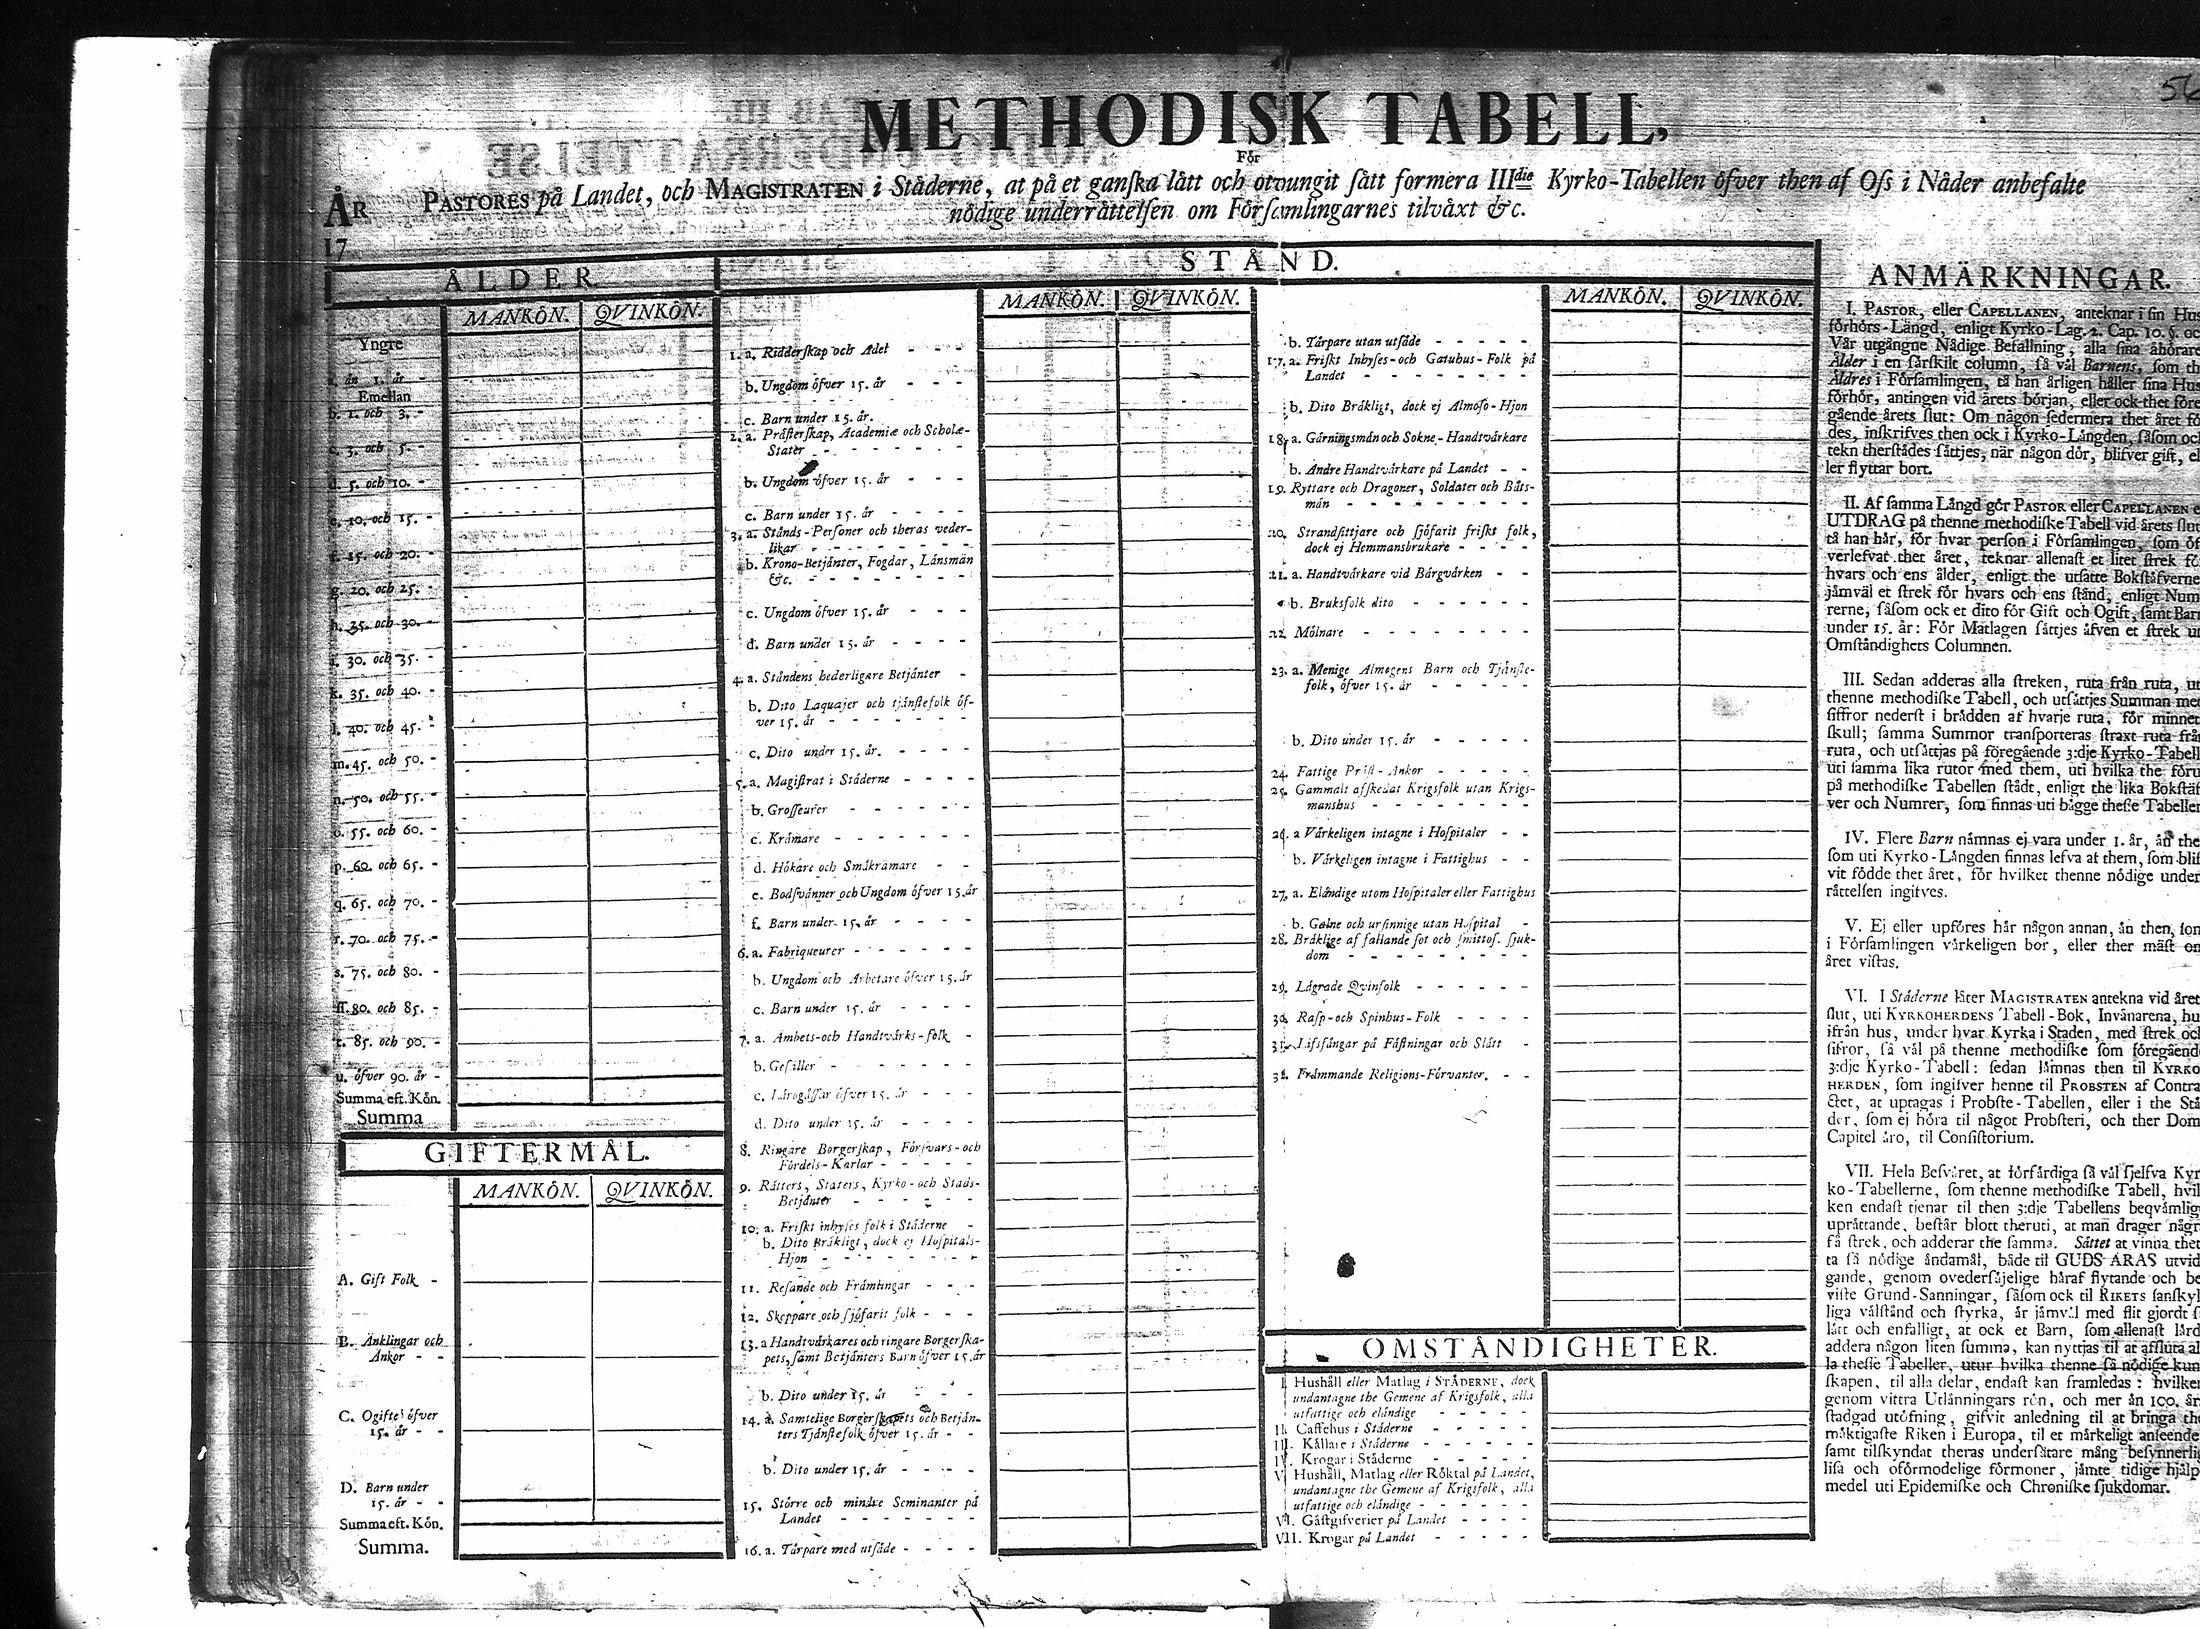 56
METHODISK TABELL,
För
ÅR PASTORES på Landet, och MAGISTRATEN i Städerne, at på et ganska lått och otvungit sått formera IIIdie Kyrko-Tabellen öfver then af Oss i Nåder anbefalte
nödige underråttelsen om Församlingarnes tilvåxt &c.
17
ÅLDER
MANKÖN. QVINKÖN.
Yngre
än 1. år -
Emellan
b. 1. och 3. -
c. 3. och 5. -
d. 5. och 10. -
e. 10. och 15. -
f. 15. och 20. -
g. 20. och 25. -
h. 35. och 30. -
i. 30. och 35. -
k. 35. och 40. -
l. 40. och 45. -
m. 45. och 50. -
n. 50. och 55. -
o. 55. och 60. -
p. 60. och 65. -
q. 65. och 70. -
r. 70. och 75. -
s. 75. och 80. -
ff. 80. och 85. -
t. 85. och 90. -
u. öfver 90. år -
Summa eft. Kön.
Summa
GIFTERMÅL.
MANKÖN. QVINKÖN.
A. Gift Folk -
B. Änklingar och
Änkor - -
C. Ogifte öfver
15. år - -
D. Barn under
15. år - -
Summa eft. Kön.
Summa.
STÅND.
MANKÖN. QVINKÖN.
1. a. Ridderskap och Adel - - -
b. Ungdom öfver 15. år - - -
c. Barn under 15. år.
2. a. Pråsterskap, Academiæ och Scholæ-
Stater - - - - - - -
b. Ungdom öfver 15. år - - -
c. Barn under 15. år - - - -
3. a. Stånds-Personer och theras veder-
likar - - - - - - -
b. Krono-Betjånter, Fogdar, Lånsmån
&c. - - - - - - -
c. Ungdom öfver 15. år - - -
d. Barn under 15. år - - - -
4. a. Ståndens hederligare Betjånter -
b. Dito Laquajer och tjånstefolk öf-
ver 15. år - - - - - -
c. Dito under 15. år. - - - -
5. a. Magistrat i Ståderne - - - -
b. Grosseurer - - - - - -
c. Kråmare - - - - - -
d. Hökare och Småkråmare - -
e. Bodsvånner och Ungdom öfver 15. år
f. Barn under 15. år - - - -
6. a. Fabriqueurer - - - - - -
b. Ungdom och Arbetare öfver 15. år
c. Barn under 15. år - - - -
7. a. Ämbets-och Handtvårks-folk -
b. Gesåller - - - - - - -
c. Lårogåssar öfver 15. år - - -
d. Dito under 15. år - - - -
8. Ringare Borgerskap, Försvars-och
Fördels-Karlar - - - - -
9. Råtters, Staters, Kyrko-och Stads-
Betjånter - - - - - -
10. a. Friskt inhyses folk i Ståderne -
b. Dito Bråkligt, dock ej Hospitals-
Hjon - - - - - - -
11. Resande och Fråmlingar - - -
12. Skeppare och sjöfarit folk - - -
13. a Handtvårkares och ringare Borgerska-
pets, samt Betjånters Barn öfver 15. år
b. Dito under 15. år - - -
14. a. Samtelige Borgerskapets och Betjån-
ters Tjånstefolk öfver 15. år - -
b. Dito under 15. år - - - -
15. Större och mindre Seminanter på
Landet - - - - - -
16. a. Tårpare med utsåde - - - -
MANKÖN. QVINKÖN.
b. Tårpare utan utsåde - - - - -
17. a. Friskt Inhyses-och Gatuhus-Folk på
Landet - - - - - - -
b. Dito Bråkligt, dock ej Almoso-Hjon
18. a. Gårningsmån och Sokne-Handtvårkare
b. Andre Handtvårkare på Landet - -
19. Ryttare och Dragoner, Soldater och Båts-
mån - - - - - - -
20. Strandsittjare och sjöfarit friskt folk,
dock ej Hemmansbrukare - - - -
21. a. Handtvårkare vid Bårgvårken - -
b. Bruksfolk dito - - - - - -
22. Mölnare - - - - - - - -
23. a. Menige Almogens Barn och Tjånste-
folk, öfver 15. år - - - - -
b. Dito under 15. år - - - - -
24. Fattige Pråst-Änkor - - - - -
25. Gammalt afskedat Krigsfolk utan Krigs-
manshus - - - - - - -
26. a Vårkeligen intagne i Hospitaler - -
b. Vårkeligen intagne i Fattighus - -
27. a. Elåndige utom Hospitaler eller Fattighus
b. Galne och ursinnige utan Hospital -
28. Bråklige af fallande sot och smittos. sjuk-
dom - - - - - - - -
29. Lågrade Qvinfolk - - - - - -
30. Rasp-och Spinhus-Folk - - - -
31. Lifsfångar på Fåstningar och Slått -
32. Fråmmande Religions-Förvanter. - -
OMSTÅNDIGHETER.
I. Hushåll eller Matlag i STÅDERNE, dock
undantagne the Gemene af Krigsfolk, alla
utfattige och elåndige - - - - -
II. Caffehus i Ståderne - - - - -
III. Kållare i Ståderne - - - - -
IV. Krogar i Ståderne - - - - -
V. Hushåll, Matlag eller Röktal på Landet,
undantagne the Gemene af Krigsfolk, alla
utfattige och elåndige - - - - -
VI. Gåstgifverier på Landet - - - -
VII. Krogar på Landet - - - - -
ANMÄRKNINGAR.
I. PASTOR, eller CAPELLANEN, anteknar i sin Hus
förhörs-Långd, enligt Kyrko-Lag. 2. Cap. 10. §. oc
Vår utgångne Nådige Befallning, alla sina åhörare
Ålder i en sårskilt column, så vål Barnens, som th
Åldres i Församlingen, tå han årligen håller sina Hus
förhör, antingen vid årets början, eller ock thet före
gående årets slut: Om någon sedermera thet året fö
des, inskrifves then ock i Kyrko-Långden, såsom och
tekn therstådes såttjes, når någon dör, blifver gift, el
ler flyttar bort.
II. Af samma Långd gör PASTOR eller CAPELLANEN e
UTDRAG på thenne methodiske Tabell vid årets slut
tå han hår, för hvar person i Församlingen, som öf
verlefvat thet året, teknar allenast et litet strek fö
hvars och ens ålder, enligt the utsatte Bokståfverne
jåmvål et strek för hvars och ens stånd, enligt Num
rerne, såsom ock et dito för Gift och Ogift, samt Barn
under 15. år: För Matlagen såttjes åfven et strek ut
Omståndighets Columnen.
III. Sedan adderas alla streken, ruta från ruta, ut
thenne methodiske Tabell, och utsåttjes Summan med
siffror nederst i brådden af hvarje ruta, för minnet
skull; samma Summor transporteras straxt ruta frå
ruta, och utsåttjas på föregående 3:dje Kyrko-Tabell
uti samma lika rutor med them, uti hvilka the föru
på methodiske Tabellen stådt, enligt the lika Bokståf
ver och Numrer, som finnas uti bågge thesse Tabeller
IV. Flere Barn nåmnas ej vara under 1. år, ån the
som uti Kyrko-Långden finnas lefva af them, som blif
vit födde thet året, för hvilket thenne nödige under
råttelsen ingifves.
V. Ej eller upföres hår någon annan, ån then, som
i Församlingen vårkeligen bor, eller ther måst om
året vistas.
VI. I Ståderne låter MAGISTRATEN antekna vid året
slut, uti KYRKOHERDENS Tabell-Bok, Invånarena, hu
ifrån hus, under hvar Kyrka i Staden, med strek och
sifror, så vål på thenne methodiske som föregåend
3:dje Kyrko-Tabell: sedan låmnas then til KYRKO
HERDEN, som ingifver henne til PROBSTEN af Contra
ctet, at uptagas i Probste-Tabellen, eller i the Stå
der, som ej höra til något Probsteri, och ther Dom
Capitel åro, til Consistorium.
VII. Hela Besvåret, at förfårdiga så vål sjelfva Kyr
ko-Tabellerne, som thenne methodiske Tabell, hvil
ken endast tjenar til then 3:dje Tabellens beqvåmlig
upråttande, består blott theruti, at man drager någr
få strek, och adderar the samma. Såttet at vinna thet
ta så nödige åndamål, både til GUDS ÅRAS utvid
gande, genom ovedersåjelige håraf flytande och be
viste Grund-Sanningar, såsom ock til RIKETS sanskyl
liga vålstånd och styrka, år jåmvål med flit gjordt s
lått och enfalligt, at ock et Barn, som allenast lård
addera någon liten summa, kan nyttjas til at afsluta al
la thesse Tabeller, utur hvilka thenne så nödige kun
skapen, til alla delar, endast kan framledas: hvilken
genom vittra Utlånningars rön, och mer ån 100. år
stadgad utöfning, gifvit anledning til at bringa the
måktigaste Riken i Europa, til et mårkeligt anseende
samt tilskyndat theras undersåtare mång besynnerlig
lisa och oförmodelige förmoner, jåmte tidige hjålp
medel uti Epidemiske och Chroniske sjukdomar.